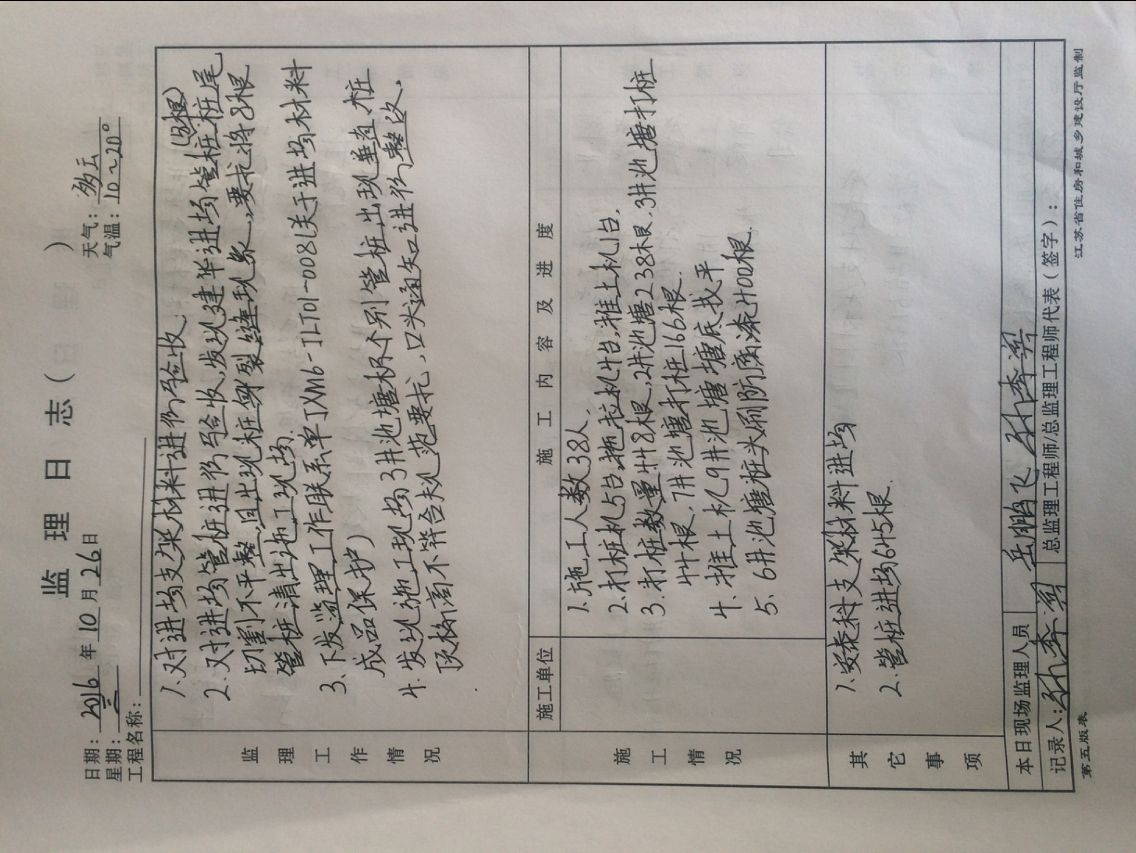 监 理 日 志（ 日 ）
日期：2016 年 10 月 26 日
天气：多云
星期：三
气温：10～20°
工程名称：
监理工作情况
1. 对进场支架材料进行验收.
2. 对进场管桩进行验收,发现建华进场管桩桩尾
切割不平整,且出现桩身裂缝现象,要求将8根
管桩清出施工现场.
3. 下发监理工作联系单JXM6-JLT01-008(关于进场材料
成品保护)
4. 发现施工现场3井池塘标个别管桩出现
顶标高不符合规范要求,口头通知进行整改.
施工情况
施工单位
施 工 内 容 及 进 度
1. 施工人数38人.
2. 打桩机5台,拖拉机4台,推土机1台.
3. 打桩数量448根,2井池塘238根.3井池塘打桩
44根.7井池塘打桩166根.
4. 推土机9井池塘塘底找平
5. 6井池塘桩头刷防腐漆400根.
其它事项
1. 安泰科支架材料进场
2. 管桩进场645根.
本日现场监理人员
岳鹏飞
记录人：
总监理工程师/总监理工程师代表（签字）：
第五版表
江苏省住房和城乡建设厅监制